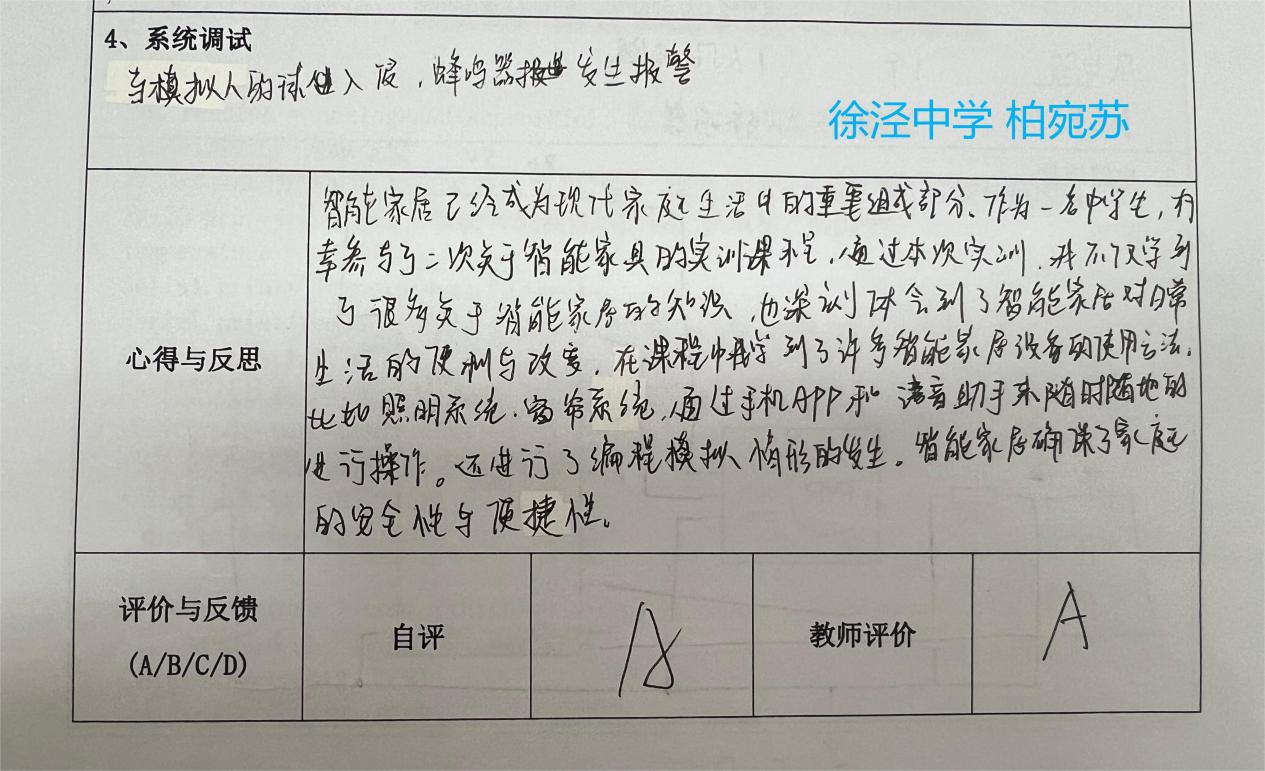 4、系统调试
当模拟人的球进入后，蜂鸣器发生报警
徐泾中学 柏宛苏
智能家居已经成为现代家庭生活中的重要组成部分、作为一名中学生，有
幸参与了二次关于智能家具的实训课程，通过本次实训，我不仅学到
了很多关于智能家居的知识，也深刻体会到了智能家居对日常
心得与反思
生活的便利与改变，在课程中我学到了许多智能家居设备的使用方法。
比如照明系统、窗帘系统，通过手机APP和语音助手来随时随地的
进行操作。还进行了编程模拟情形的发生。智能家居确保了家庭
的安全性与便捷性。
评价与反馈
(A/B/C/D)
自评
A
教师评价
A